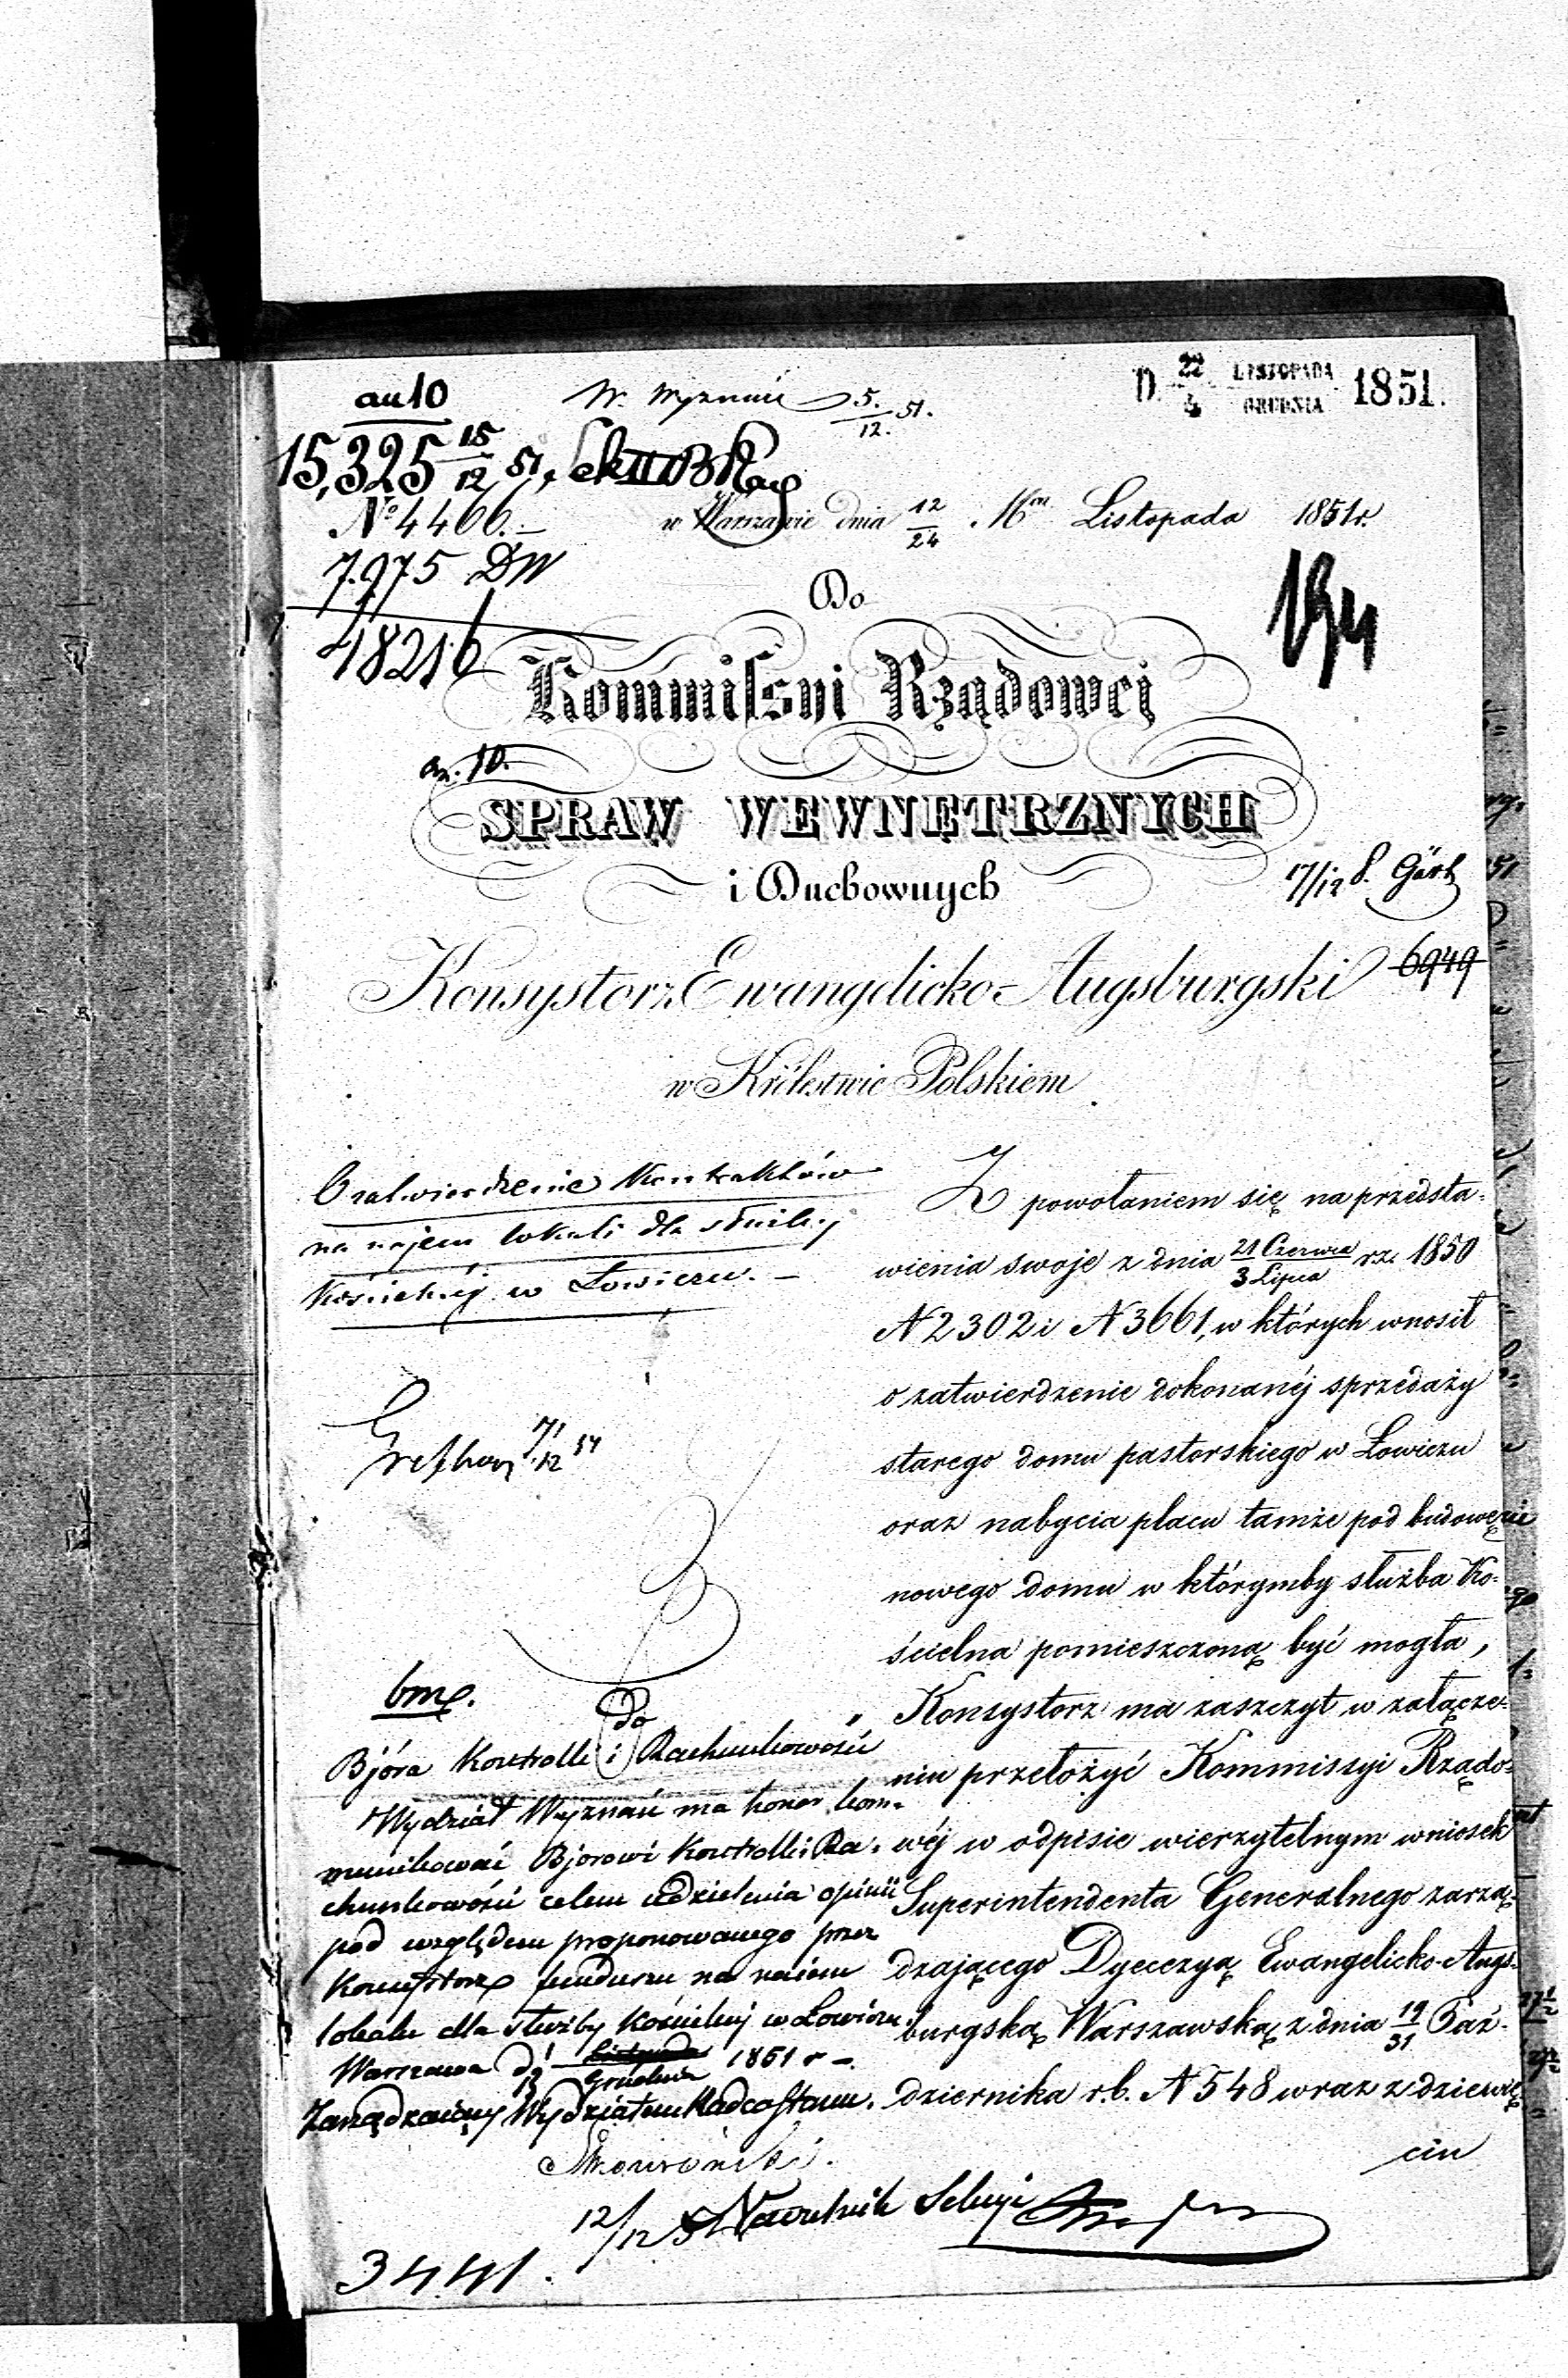 an 10
W. Wyznań 5./12. 51.
D 22/4 LISTOPADA/GRUDNIA 1851.
15,325 15/12 51,
№ 4466.
w Warszawie dnia 12/24 Listopada 1851 r.
7975 DW
18216
Do
Kommissyi Rządowej
an. 10.
SPRAW WEWNĘTRZNYCH
i Duchownych
17/12
6949
Konsystorz Ewangelicko-Augsburgski
w Królestwie Polskiem
O zatwierdzenie Kontraktów
na najem lokali dla służby
Kościelnej w Łowiczu. —
Z powołaniem się na przedsta-
wienia swoje z dnia 21 Czerwca/3 Lipca r.z. 1850
N 2302 i N 3661, w których wnosił
o zatwierdzenie dokonanéj sprzedaży
starego domu pastorskiego w Łowiczu
oraz nabycia placu tamże pod budowę
nowego domu w którymby służba Ko-
ścielna pomieszczoną być mogła,
Konsystorz ma zaszczyt w załącze-
niu przełożyć Kommissyi Rządo-
wéj w odpisie wierzytelnym wniosek
Superintendenta Generalnego zarzą-
dzającego Dyecezyą Ewangelicko-Augs-
burgską Warszawską z dnia 19/31 Paź-
dziernika r.b. N 548 wraz z dziewię
ciu
do
Bjóra Kontrolli i Rachunkowości
Wydział Wyznań ma honor kom-
munikować Bjorowi Kontrolli i Ra-
chunkowości celem udzielenia opinii
pod względem proponowanego przez
Konsystorz funduszu na najem
lokalu dla służby Kościelnej w Łowiczu.
Warszawa d. 1/13 Grudnia 1851 r —
Zarządzający Wydziałem Radca Stanu.
12/12 51 Naczelnik Sekcyi
3441.